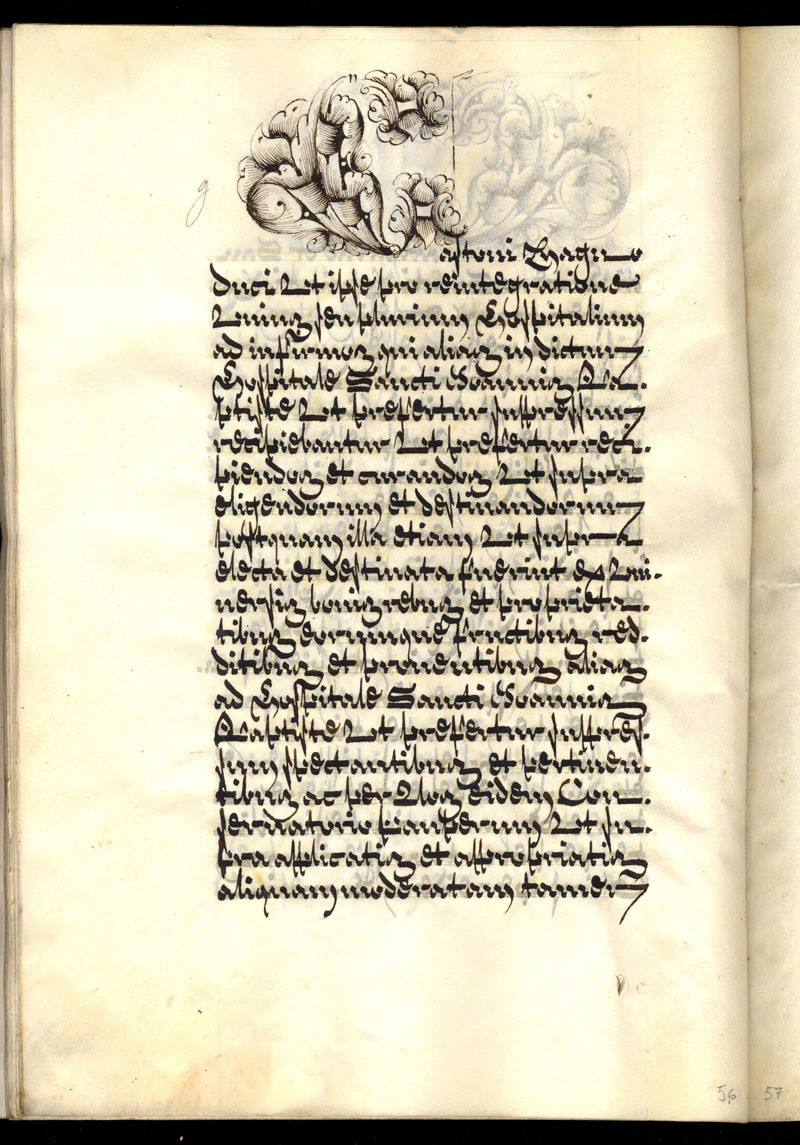 g
Gastoni Magno
Duci Ut ipse pro reintegratione
Unius seu plurium Hospitalium
ad infirmos qui alias in dictum
Hospitale Sancti Joannis Ba.
ptiste Ut prefertur suppressum
recipiebantur Ut prefertur reci.
piendos et curandos Ut supra
eligendorum et destinandorum
postquam illa etiam Ut supra
electa et destinata fuerint ex Uni.
uersis bonis rebus et proprieta.
tibus eorumque fructibus red.
ditibus et prouentibus alias
ad Hospitale Sancti Joannis
Baptiste Ut prefertur suppres.
sum spectantibus et pertinen.
tibus ac per Nos eidem Con.
seruatorio Pauperum Ut su.
pra applicatis et appropriatis
aliquam moderatam tamen
56 57